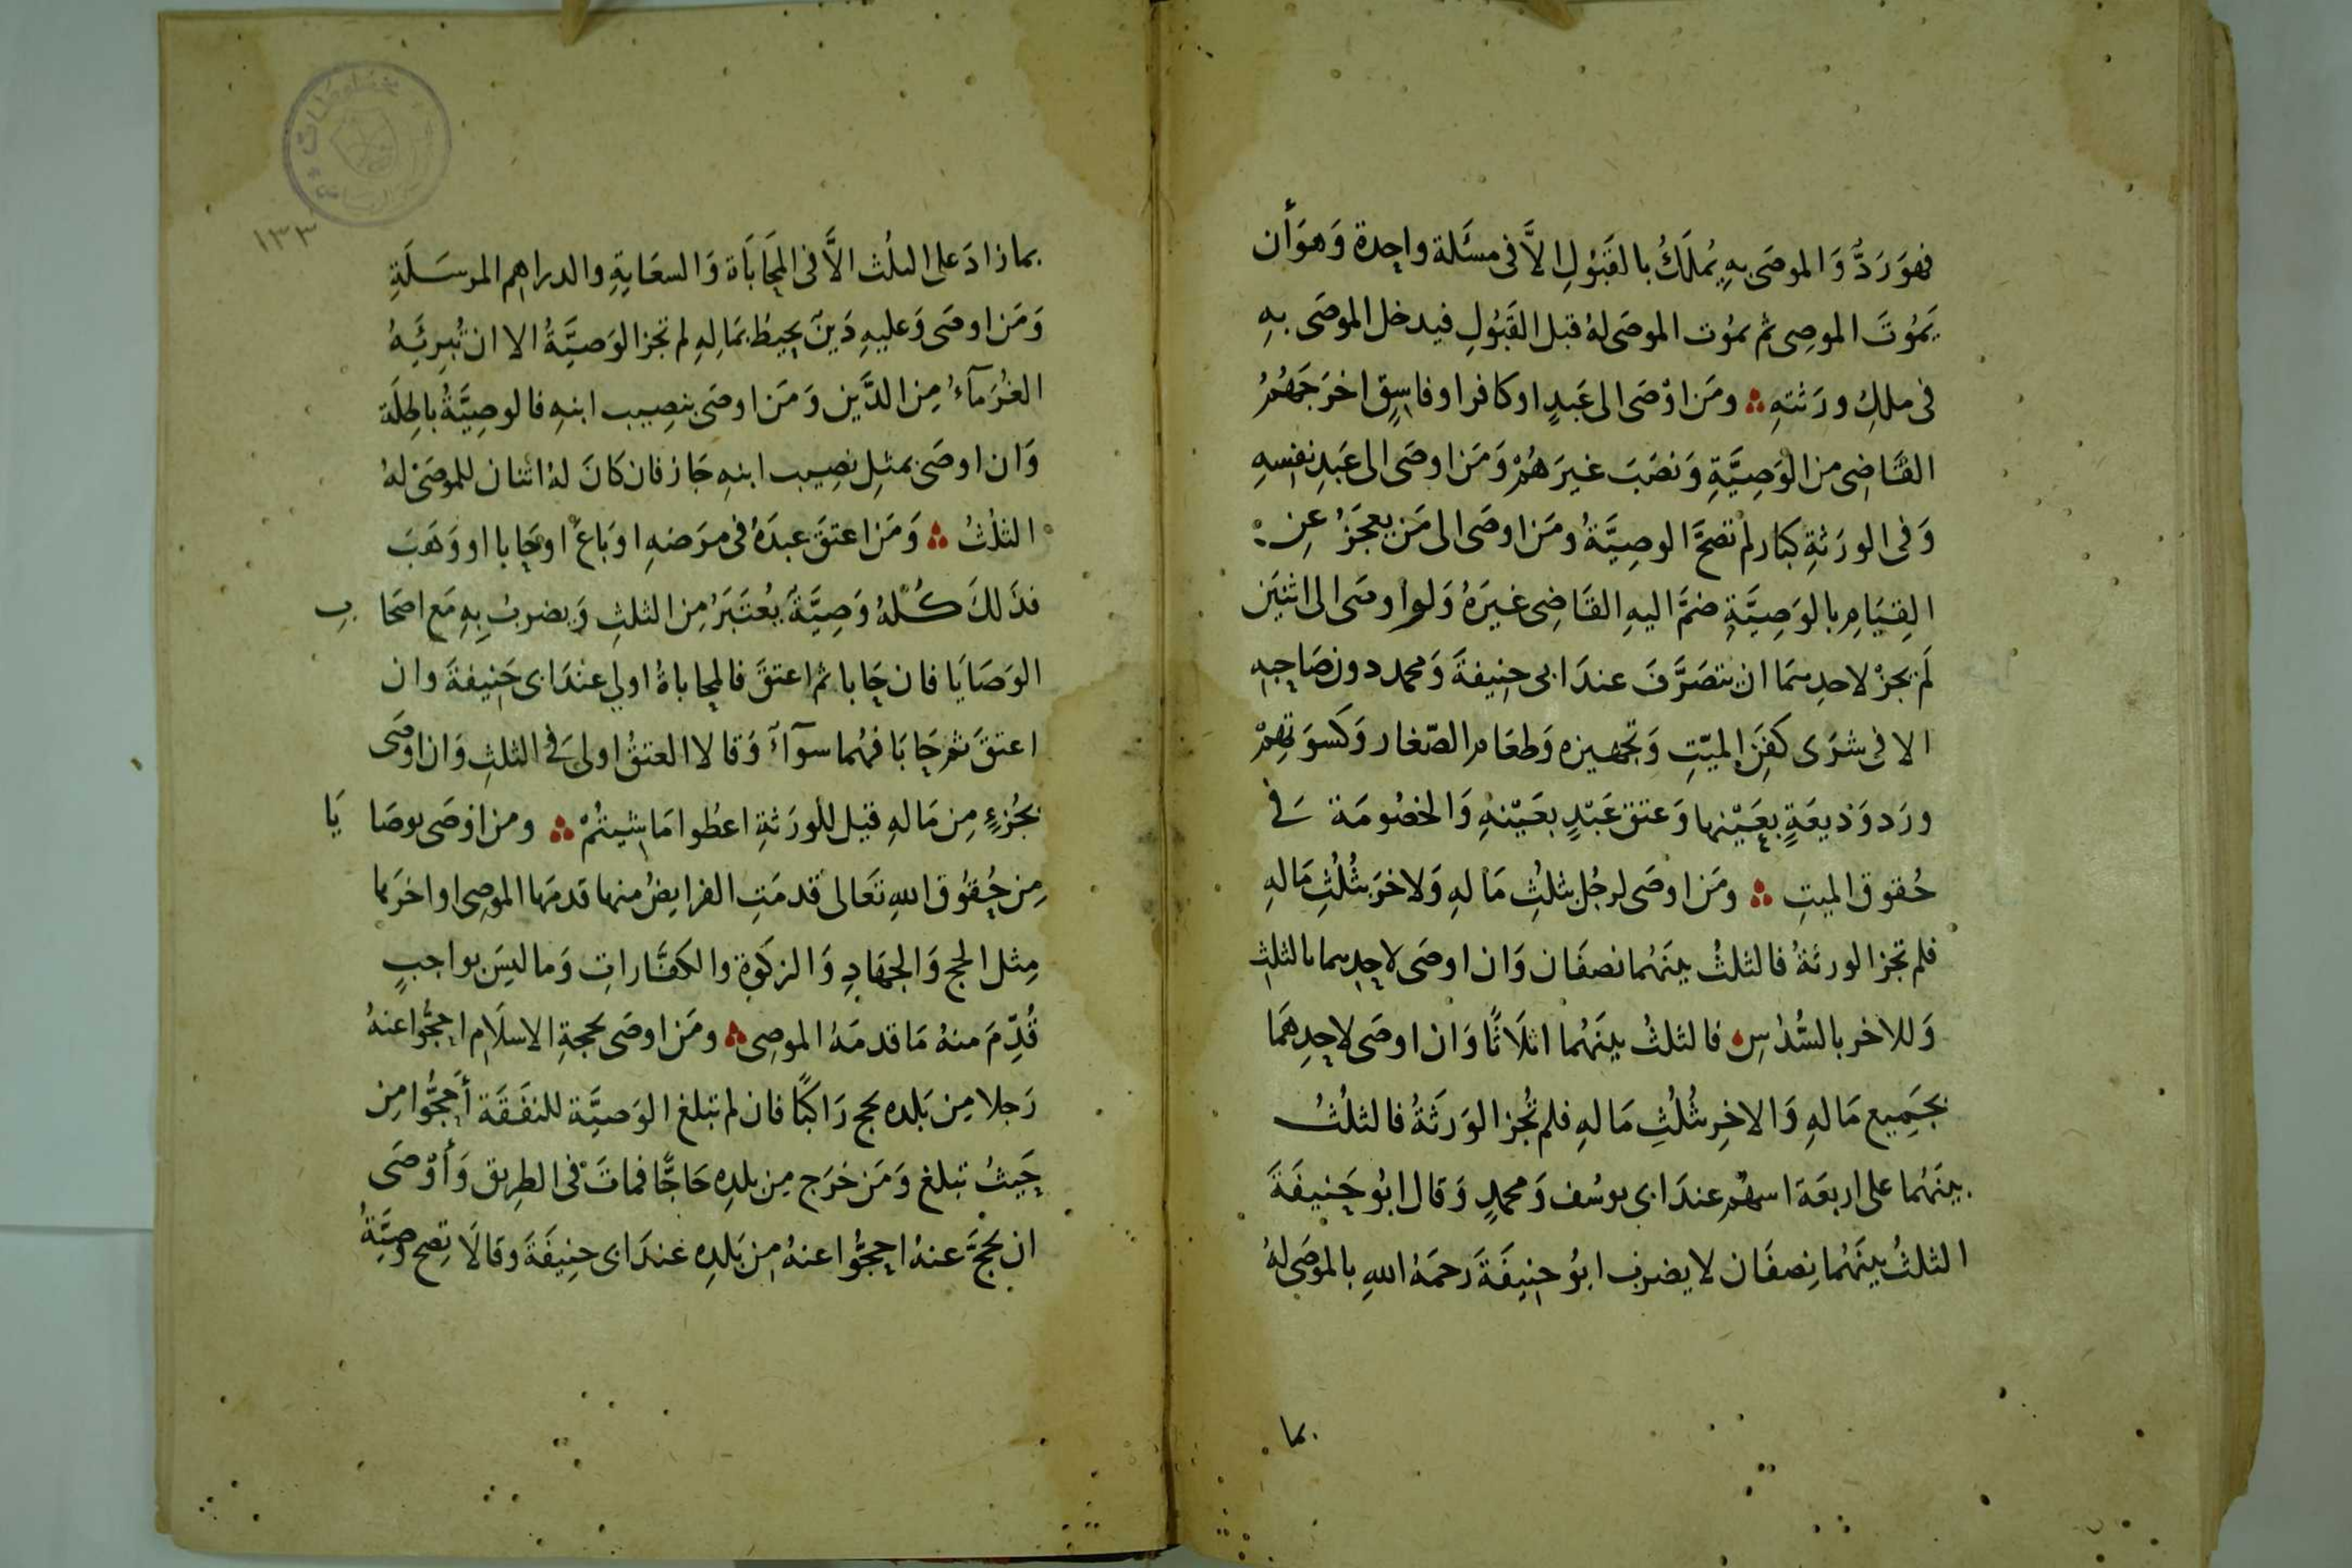 فهوَ رَدٌّ وَالموصَى بهِ يُملَكُ بالقَبُولِ الاَّ فى مسَئَلة واحِدة وَهوَ أن
يَمُوتَ الموصِى ثم يموُت الموصَى لهُ قبل القَبُولِ فيدخل الموصَى بهِ
فى ملكِ ورَثتهِ ومَن اوْصَى الى عَبدٍ او كافر او فاسِقٍ اخرَجَهُمُ
القَاضِى من الوَصِيَّةِ وَنصَبَ غيرَهُمْ وَمَن اوصَى الى عَبدِ نفسِهِ
وَفى الورَثةِ كبَار لم تصحَّ الوصِيَّةُ ومَن اوصَى الى مَن يعجَزُ عنِ
القِيَامِ بالوَصِيَّةِ ضمَّ اليهِ القَاضِى غيرَهُ وَلو اوصَى الى اثنَين
لَم يجزْ لاحدِهمَا ان يتصَرَّفَ عندَ ابى حنِيفةَ وَمحمد دون صَاحِبهِ
الا فى شرَى كفَنِ الميّتِ وَتجهيزه وَطعَام الصّغار وَكسوَتهِمْ
ورَد وَذيعَةٍ بعَيْنها وَعتق عَبْدٍ بعَيْنهِ وَالخصُومَة فى
حُقوق الميتِ ومَن اوصَى لرجُل بثلثُِ مَالهِ وَلاخرَ بثُلُثِ مَالهِ
فلم تجز الورثةُ فالثلثُ بينَهُما نصفَان وَان اوصَى لاحِدِهما بالثلثِ
وَللاخر بالسُّدُسِ فالثلثُ بينَهُما اثلَاثًا وَان اوصَى لاحِدِهمَا
بجَمِيع مَالهِ وَالاخِر بثُلُثِ مَالهِ فلم تُجز الوَرَثَةُ فالثلثُ
بينَهُما على اربعَة اسهُم عندَ ابى يوسُف وَمحمدٍ وَقال ابوُ حَنِيفَةَ
الثلثُ بينَهُما نِصفَان لا يضرب ابوُ حنِيفَةَ رحمَهُ اللهِ بالموصَى لهُ
بما
١٣٣
بما زادَ على الثلُث الاَّ فى المحَابَاة وَالسعَايةِ والدراهم المرسَلَةِ
وَمَن اوصَى وَعليهِ دَينٌ يحِيطُ بمَالهِ لم تجز الوَصيَّةُ الا ان تُبرِئَهُ
الغُرَمآءُ مِن الدَّين وَمَن اوصَى بنصِيب ابنهِ فالوصِيَّةُ باطِلَة
وَان اوصَى بمثلِ نصِيب ابنهِ جَاز فان كانَ لهُ اثنان للموصَى لهُ
الثلُثُ وَمَن اعتقَ عبدَهُ فى مرَضهِ او بَاعَ او حَابا او وَهَبَ
فذَلكَ كُلهُ وَصِيَّةً يُعتَبَرُ مِن الثلثِ وَيضربُ بِهِ مَع اصحَاب
الوَصَايَا فان حَابا ثم اعتقَ فالمحاباةُ اولى عندَ ابى حَنِيفةَ وان
اعتقَ ثم حَابَا فهُما سوآءٌ وَقالا العتقُ اولىَ فى الثلثِ وَان اوصَى
بجُزءٍ مِن مَالهِ قيل للورَثةِ اعطُوا مَا شِيتُمْ ومن اوصَى بوصَايَا
مِن حُقوُق اللهِ تَعَالى قدمَتِ الفرايضُ منها قدمَها الموصِى او اخرَها
مِثل الحج وَالجهَادِ وَالزكَوة والكفَّاراتِ وَما ليسَ بواجبٍ
قُدِّمَ منهُ مَا قدمَهُ الموصِى ومَن اوصَى بحجةِ الاسلَام احجُّوا عنهُ
رَجلا مِن بَلده يحج رَاكبًا فان لم تبلغ الوَصيَّة للنفَقَة أحَجُّوا مِن
حَيثُ تبلغ وَمَن خرَج مِن بلدِه حَاجًّا فماتَ فى الطرِيق وَأوْصَى
ان يحَجَّ عنهُ احجُّوا عنهُ مِن بَلدِه عندَ ابى حنِيفَةَ وقالاَ تصح وصيَّةُ